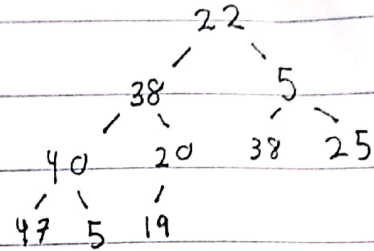 22
38 5
40 20 38 25
47 5 19